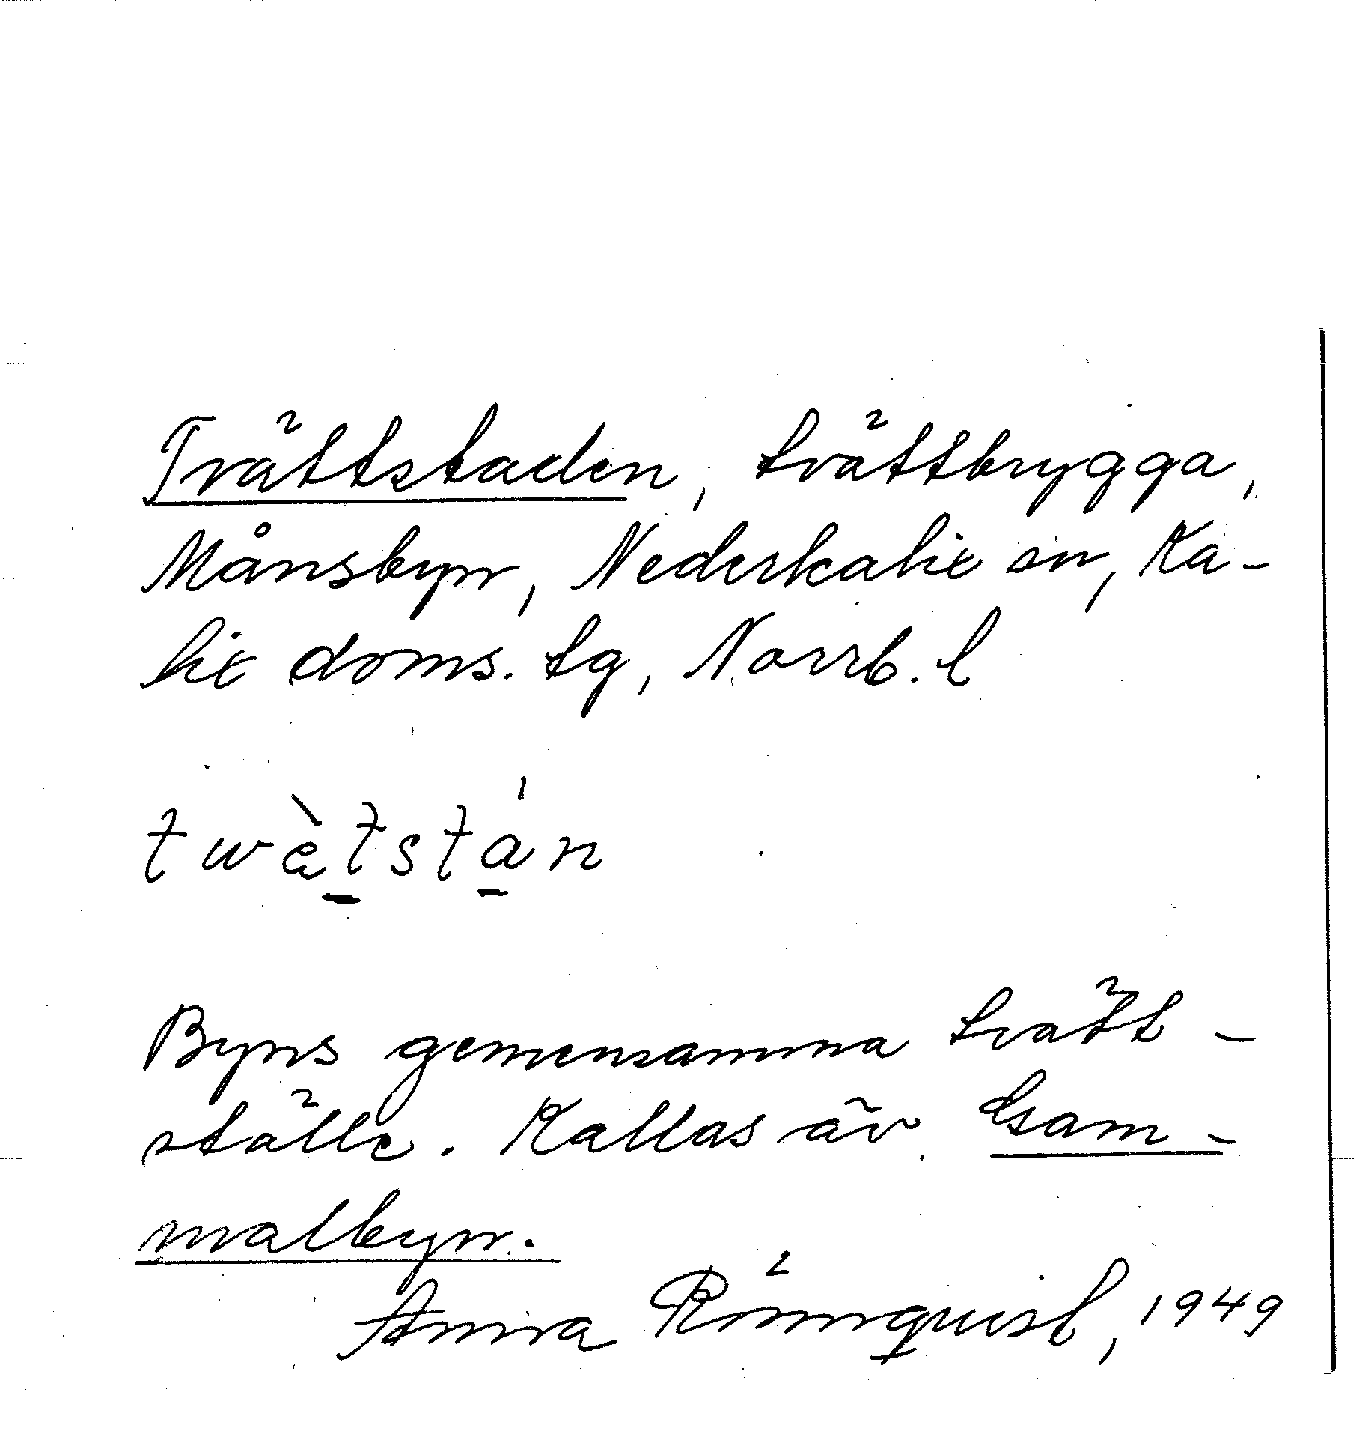 Tvättstaden, tvättbrygga,
Månsbyn, Nederkalix sn, Ka-
lix doms. tg, Norrb. l
twæ̀tstá̱n
Byns gemensamma tvätt-
ställe. Kallas äv Gam-
malbyn.
Anna Rönnquist, 1949